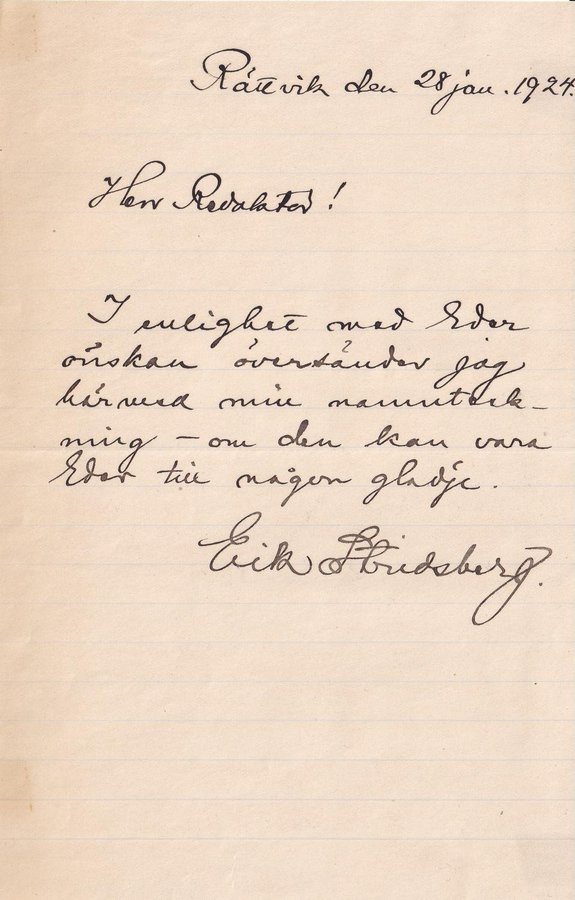 Rättvik den 28 jan. 1924.
Herr Redaktör!
I enlighet med Eder
önskan översänder jag
härmed min namnteck-
ning – om den kan vara
Eder till någon glädje.
Erik Stridsberg.